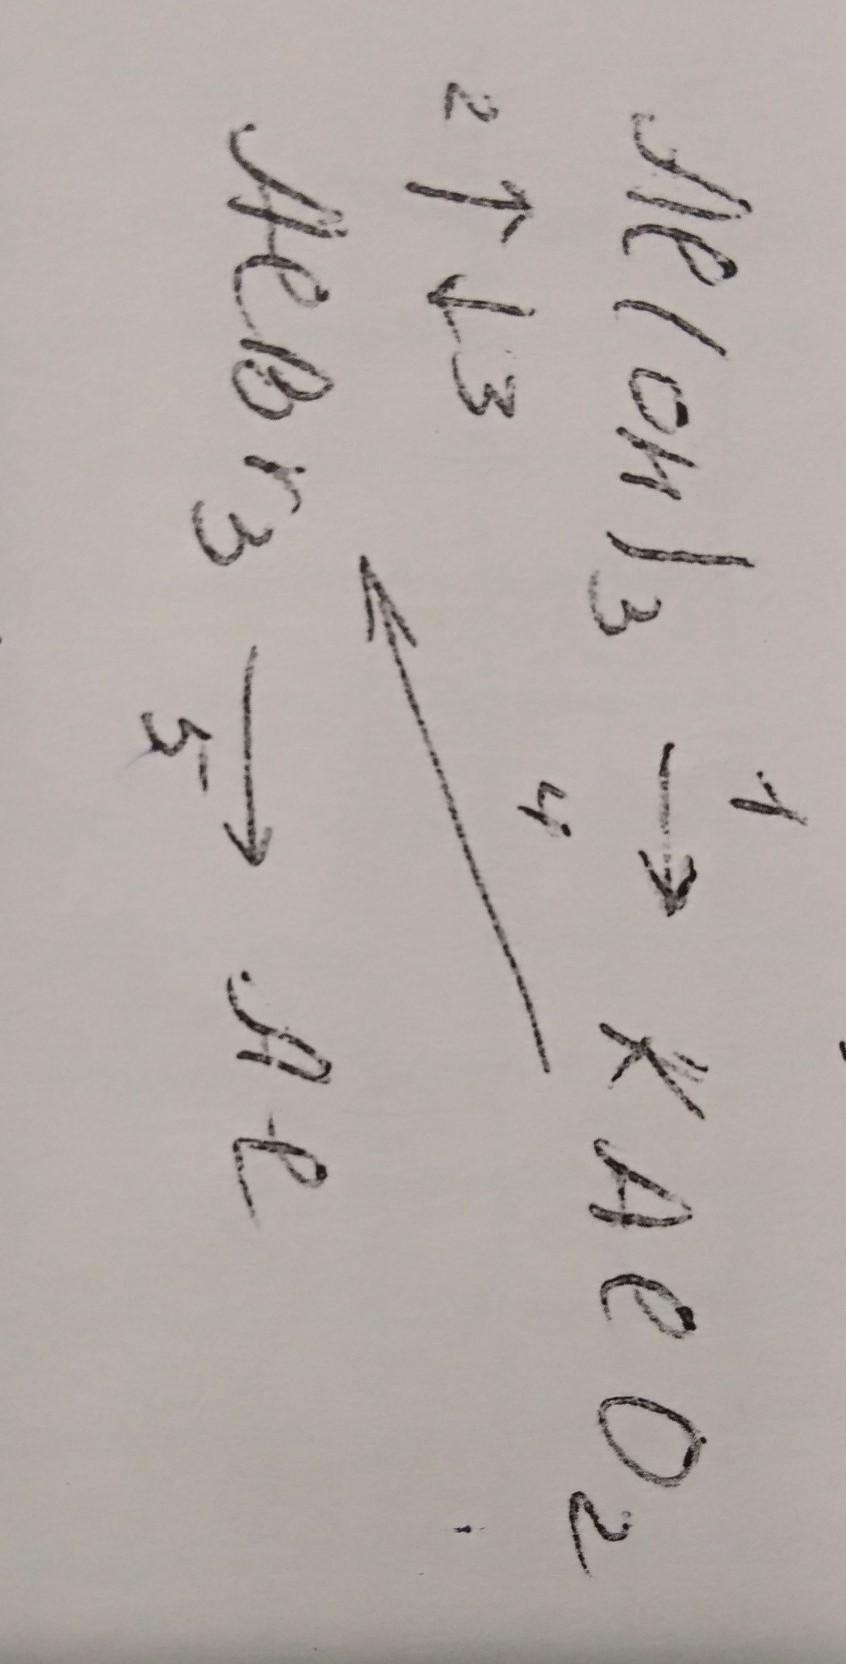 1
Al(OH)3 → KAlO2
2 ↑ ↓ 3 ↙ 4
AlBr3 → Al
5